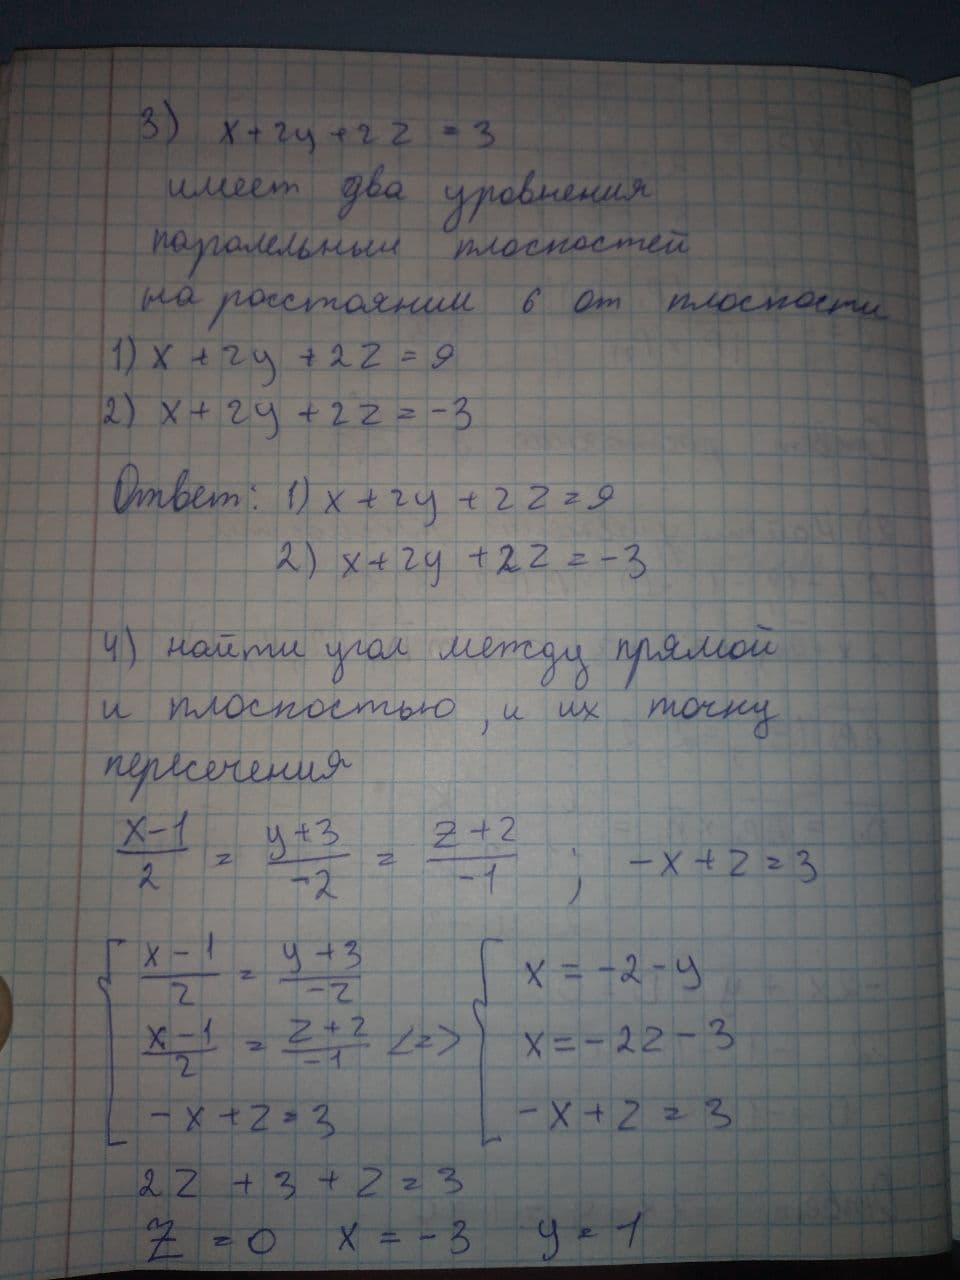 3) x+2y+2z = 3
имеет два уровнения
паралельных плоскостей
на расстоянии 6 от плоскости
1) x+2y+2z=9
2) x+2y+2z=-3
Ответ: 1) x+2y+2z=9
2) x+2y+2z=-3
4) найти угол между прямой
и плоскостью, и их точку
пересечения
(x-1)/2 = (y+3)/-2 = (z+2)/-1 ; -x+z=3
{ (x-1)/2 = (y+3)/-2 { x=-2-y
(x-1)/2 = (z+2)/-1 <=> x=-2z-3
-x+z=3 -x+z=3
2z+3+z=3
z=0 x=-3 y=1